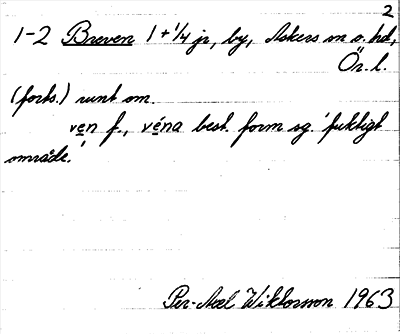 2
1-2 Breven 1 + 1/4 jr, by, Askers sn o. hd,
Ör. l.
(forts.) runt om.
ven f., véna best. form sg. 'fuktigt
område.'
Per-Axel Wiktorsson 1963